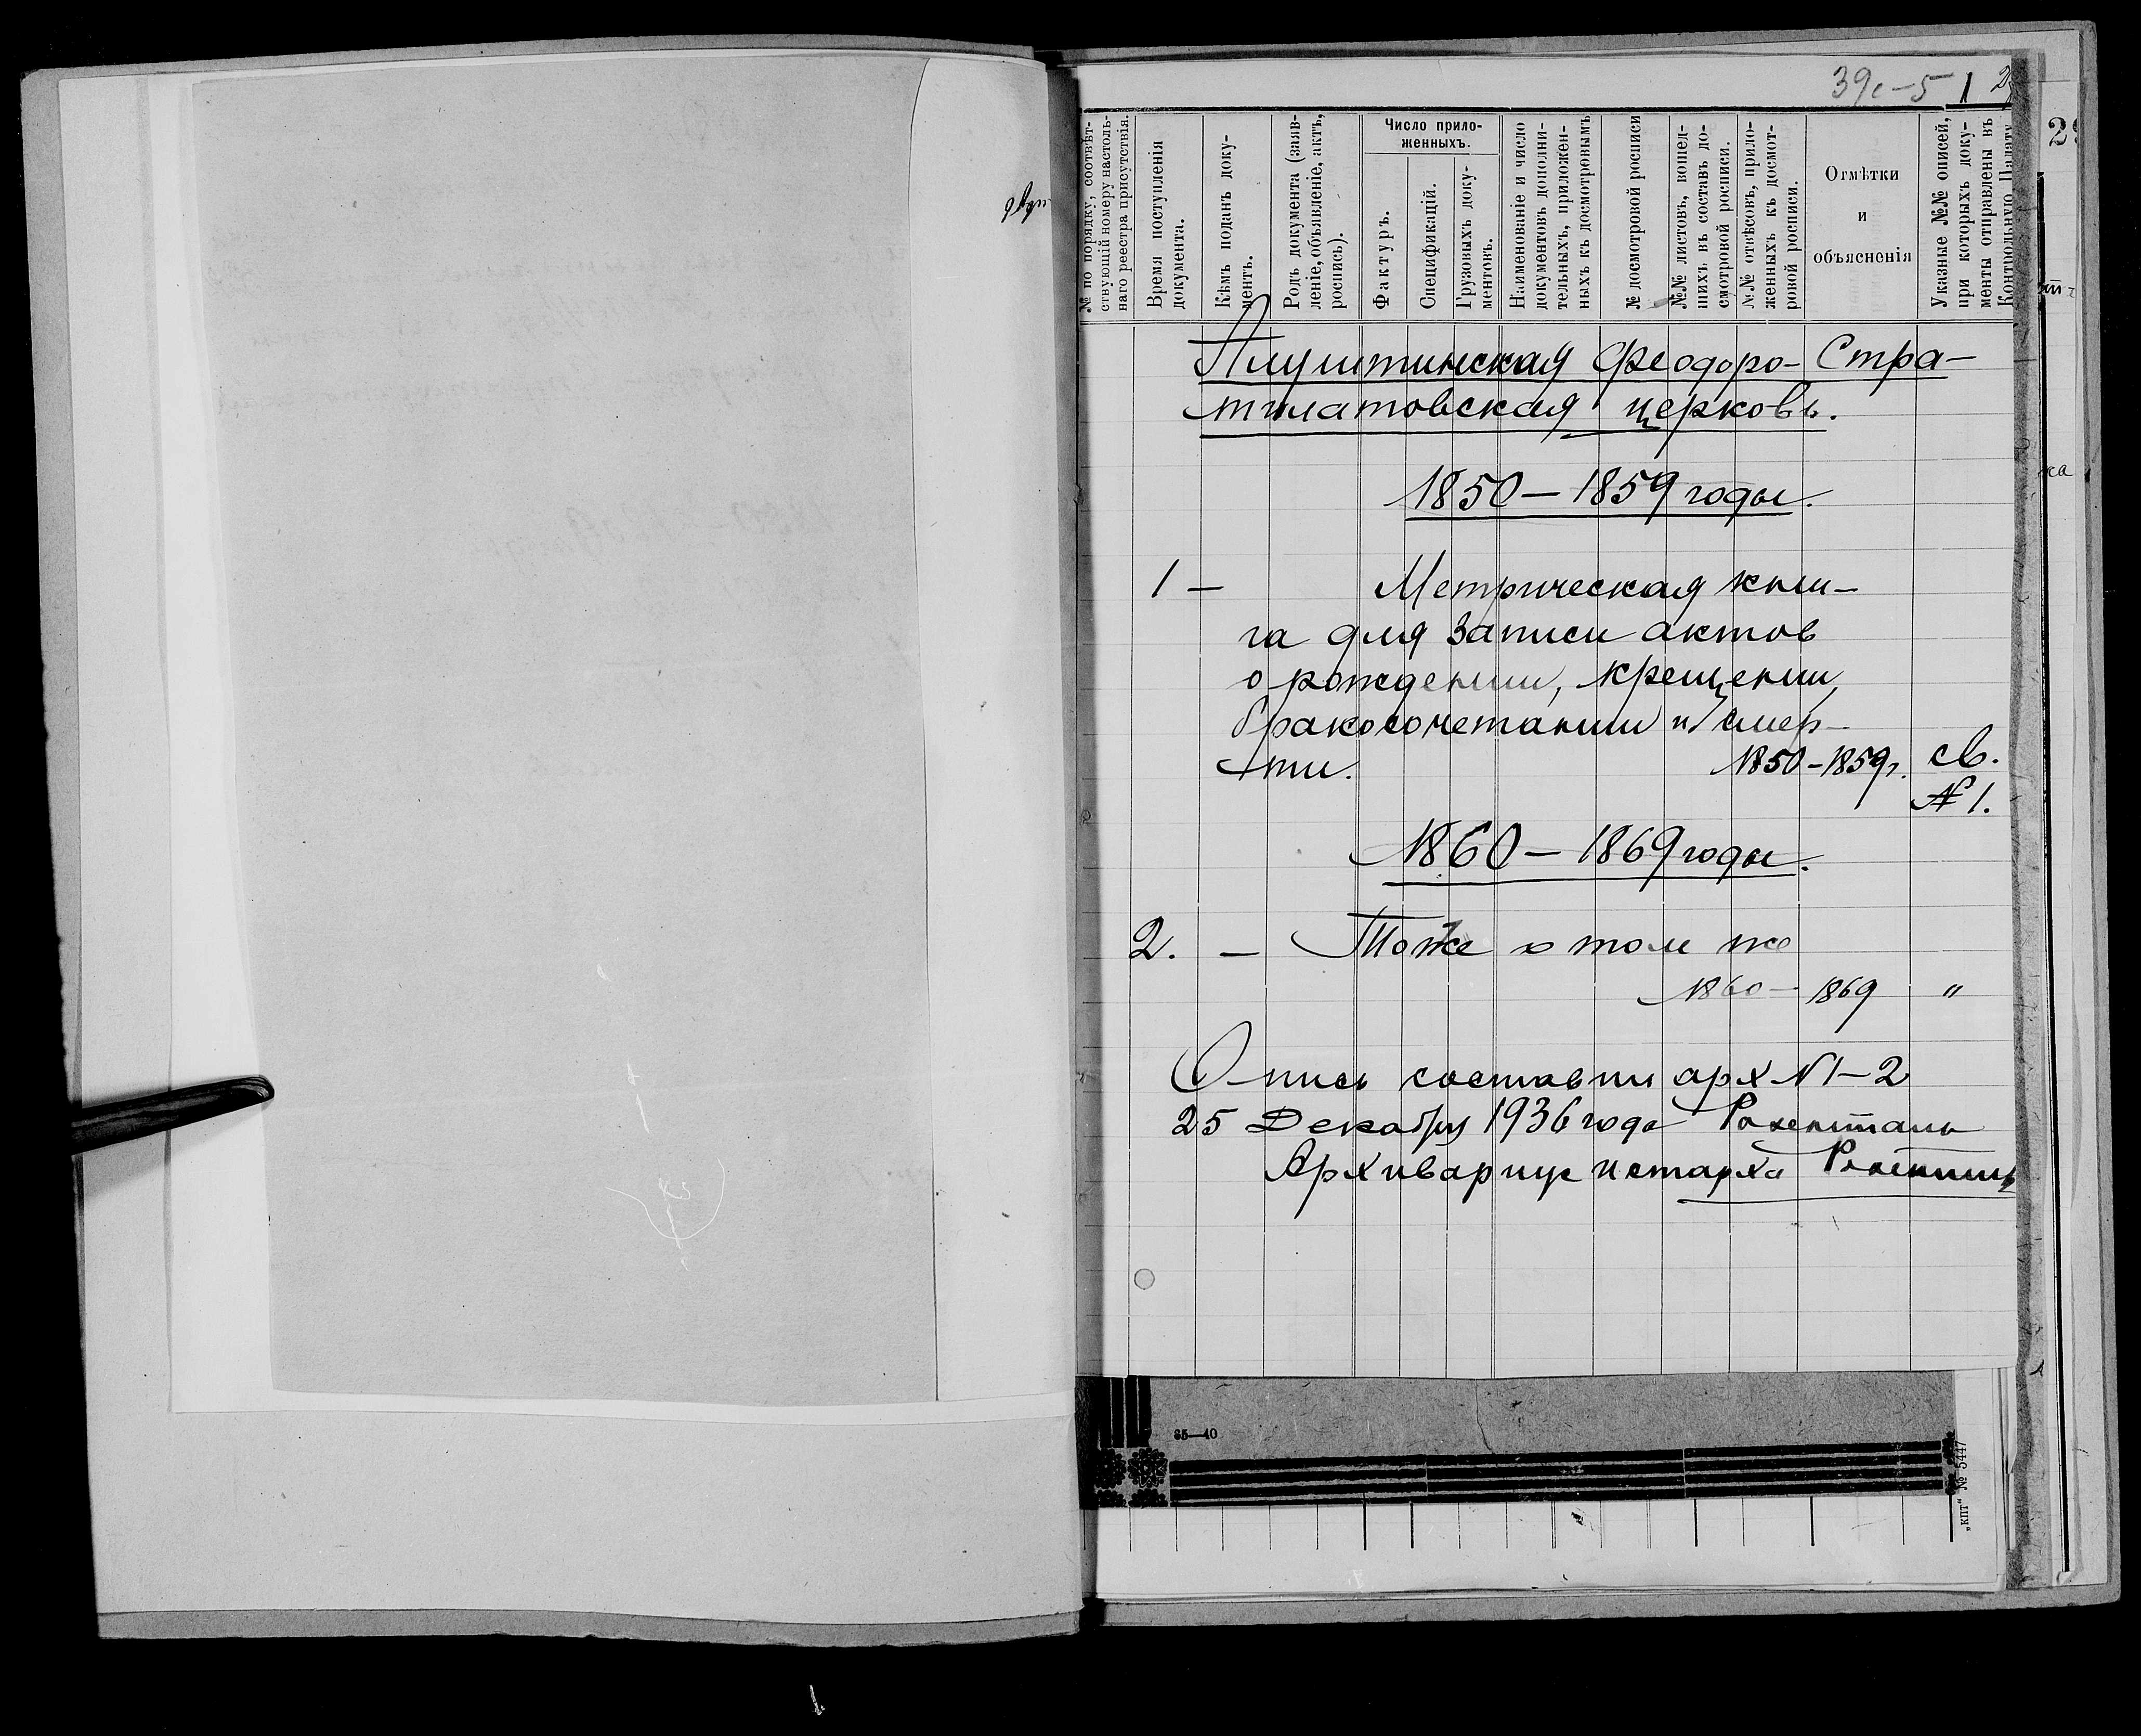 39с-5 1
№ по порядку, соотвѣт-
ствующій номеру настоль-
наго реестра присутствія.
Время поступленія
документа.
Кѣмъ поданъ доку-
ментъ.
Родъ документа (заяв-
леніе, объявленіе, актъ,
роспись).
Число прило-
женныхъ.
Фактуръ.
Спецификацій.
Грузовыхъ доку-
ментовъ.
Наименованіе и число
документовъ дополни-
тельныхъ, приложен-
ныхъ къ досмотровымъ
№ досмотровой росписи
№№ листовъ, вошел-
шихъ въ составъ до-
смотровой росписи.
№№ отвѣсовъ, прило-
женныхъ къ досмот-
ровой росписи.
Отмѣтки
и
объясненія
Указные №№ описей,
при которыхъ доку-
менты отправлены въ
Контрольную Палату
Феодоро-Стра-
тилатовская церковь.
1850-1859 годы.
1 - Метрическая кни-
га для записи актов
о рождении, крещении,
бракосочетании и смер-
ти. 1850-1859г. св.
№ 1.
1860-1869 годы.
2. - Тоже о том же
1860-1869 "
Опись составил арх №1-2
25 Декабря 1936 года
Архивариус истарха
65—40
„КПТ“ № 5447